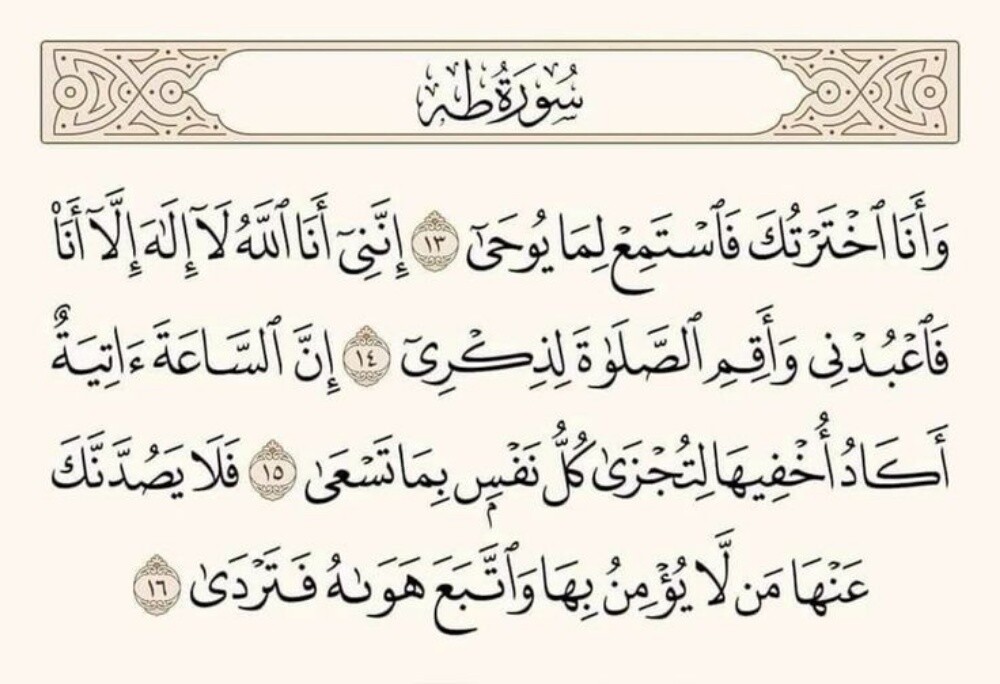 سُورَةُ طه
وَأَنَا ٱخْتَرْتُكَ فَٱسْتَمِعْ لِمَا يُوحَىٰٓ ١٣ إِنَّنِىٓ أَنَا ٱللَّهُ لَآ إِلَٰهَ إِلَّآ أَنَا۠
فَٱعْبُدْنِى وَأَقِمِ ٱلصَّلَوٰةَ لِذِكْرِىٓ ١٤ إِنَّ ٱلسَّاعَةَ ءَاتِيَةٌ
أَكَادُ أُخْفِيهَا لِتُجْزَىٰ كُلُّ نَفْسٍۭ بِمَا تَسْعَىٰ ١٥ فَلَا يَصُدَّنَّكَ
عَنْهَا مَن لَّا يُؤْمِنُ بِهَا وَٱتَّبَعَ هَوَىٰهُ فَتَرْدَىٰ ١٦